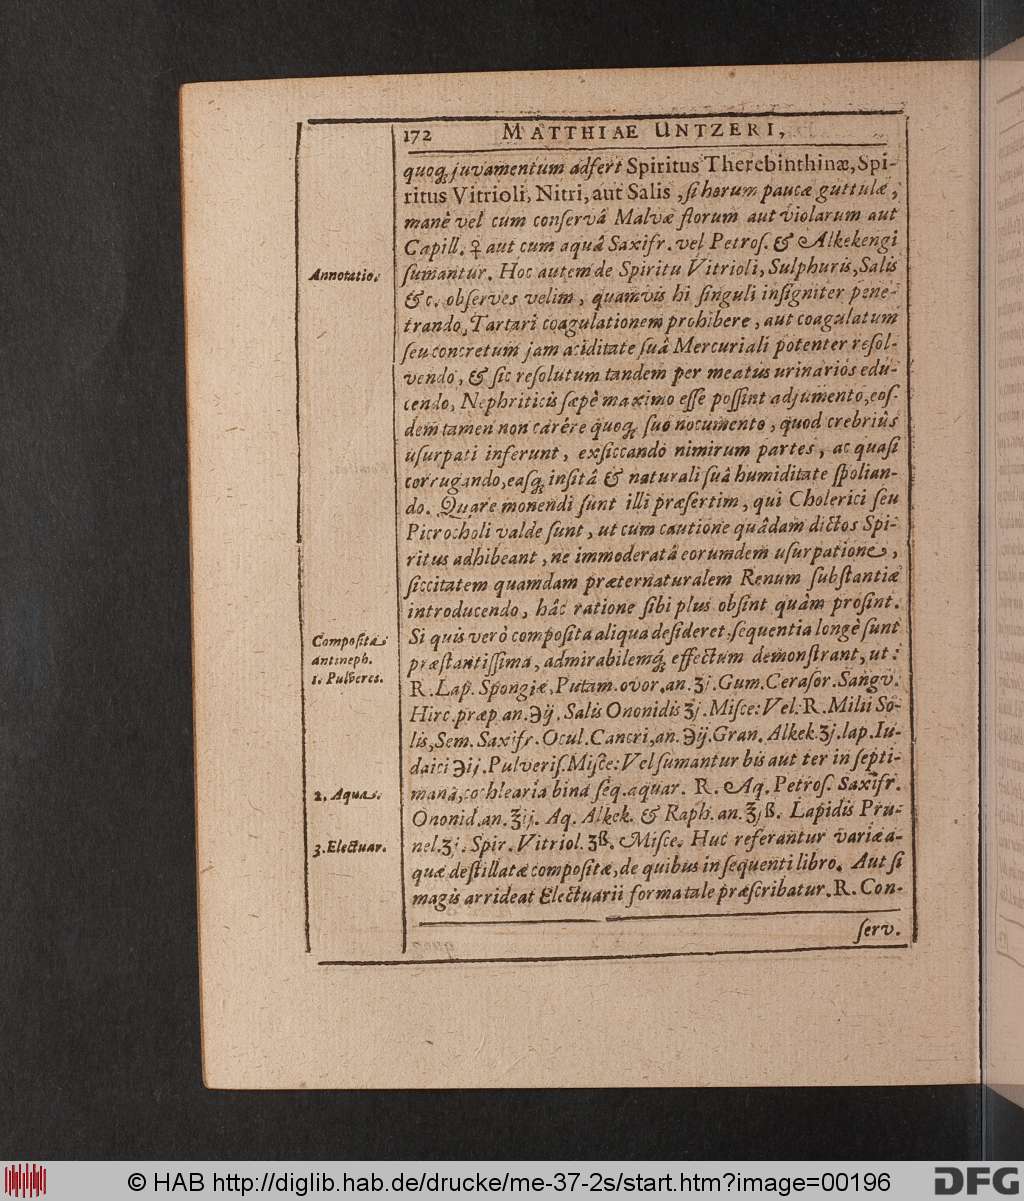 172 MATTHIAE UNTZERI,
quoq́; juvamentum adfert Spiritus Therebinthinæ, Spi-
ritus Vitrioli, Nitri, aut Salis, ſi horum paucæ guttulæ,
manè vel cum conſervâ Malvæ florum aut violarum aut
Capill. ♀ aut cum aquâ Saxifr. vel Petroſ. & Alkekengi
Annotatio.
ſumantur. Hoc autem de Spiritu Vitrioli, Sulphuris, Salis
&c. obſerves velim, quamvis hi ſinguli inſigniter pene-
trando, Tartari coagulationem prohibere, aut coagulatum
ſeu concretum jam aciditate ſuâ Mercuriali potenter reſol-
vendo, & ſic reſolutum tandem per meatus urinarios edu-
cendo, Nephriticis ſæpè maximo eſſe poſſint adjumento, eoſ-
dem tamen non carére quoq; ſuo nocumento, quod crebriùs
uſurpati inferunt, exſiccando nimirum partes, ac quaſi
corrugando, eaſq; inſitâ & naturali ſuâ humiditate ſpolian-
do. Quare monendi ſunt illi præſertim, qui Cholerici ſeu
Picrocholi valde ſunt, ut cum cautione quâdam dictos Spi-
ritus adhibeant, ne immoderatâ eorumdem uſurpatione,
ſiccitatem quamdam præternaturalem Renum ſubſtantiæ
introducendo, hâc ratione ſibi plus obſint quàm proſint.
Compoſita
antineph.
1. Pulveres.
Si quis verò compoſita aliqua deſideret, ſequentia longè ſunt
præſtantiſſima, admirabilemq́; effectum demonſtrant, ut:
R. Lap. Spongiæ, Putam. ovor. an. ʒj. Gum. Ceraſor. Sangv.
Hirc. præp. an. ℈ij. Salis Ononidis ʒj. Miſce: Vel: R. Milii So-
lis, Sem. Saxifr. Ocul. Cancri, an. ℈ij. Gran. Alkek. ʒj. lap. Iu-
daici ℈ij. Pulveriſ. Miſce: Vel ſumantur bis aut ter in ſepti-
2. Aquæ.
mana, cochlearia bina ſeq. aquar. R. Aq. Petroſ. Saxifr.
Ononid. an. ℥ij. Aq. Alkek. & Raph. an. ℥jß. Lapidis Pru-
3. Electuar.
nel. ʒj. Spir. Vitriol. ʒß. Miſce. Huc referantur variæ a-
quæ deſtillatæ compoſitæ, de quibus in ſequenti libro. Aut ſi
magis arrideat Electuarii forma tale præſcribatur. R. Con-
ſerv.
© HAB http://diglib.hab.de/drucke/me-37-2s/start.htm?image=00196
DFG